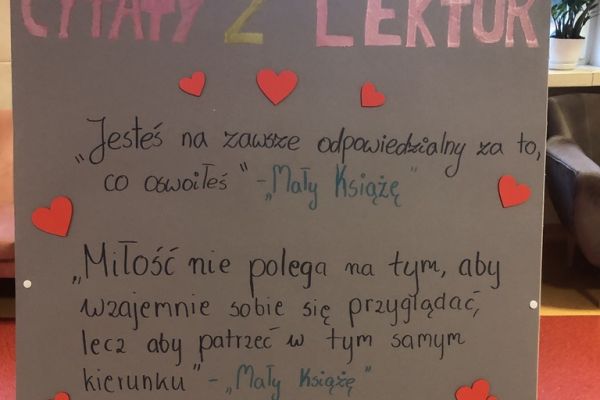 CYTATY Z LEKTUR
„Jesteś na zawsze odpowiedzialny za to,
co oswoiłeś" - „Mały Książę"
„Miłość nie polega na tym, aby
wzajemnie sobie się przyglądać,
lecz aby patrzeć w tym samym
kierunku" - „Mały Książę"